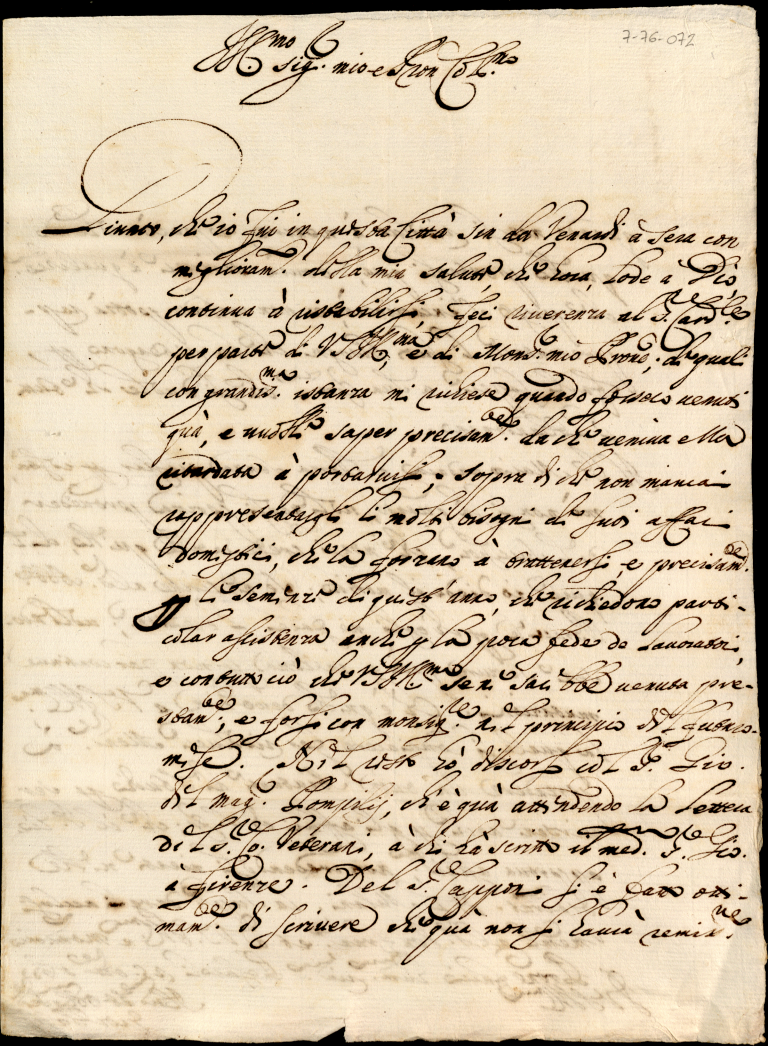 7-76-072
Ill.mo
Sig.r mio e Pron Col.mo
che io fui in questa Città sin da Venardì à sera con
miglioram.to della mia salute, che hora, lode à Dio,
continua à ristabilirsi, feci riverenza al S.r Card.le
per parte di V.S. Ill.ma, e di Mons.r mio Prone, de quali
con grandis.ma istanza mi richiese quando fossero venuti
quà, e volle saper precisam.te da che veniva ella
ritardata à portarvisi; sopra di che non mancai
rappresentargli li molti bisogni de suoi affari
domestici, che la forzano à trattenersi, e precisam.te
p le semenze di quest'anno, che richiedono parti-
colar assistenza anche p la poca fede de lavoratori,
e con tutto ciò che V.S. Ill.ma se ne sarebbe venuta pre-
stam.te, e forsi con monsig.re nel principio del futuro
mese. Nel resto hò discorso col S.r Gio.
del mag. Pompilij, ch'è quà attendendo la lettera
del S. Co. Veterani, à chi hà scritto il med. S.r Gio.
à Firenze. Del S.r Capponi si è fatto otti-
mam.te di scrivere che quà non si havea